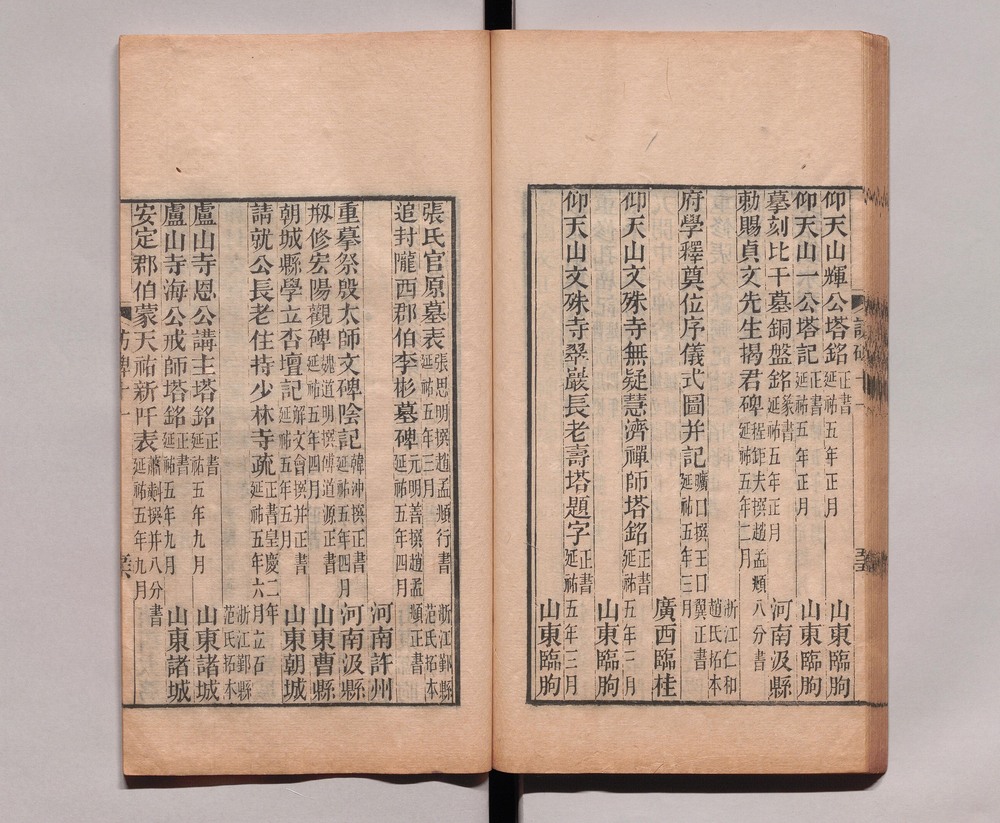 仰天山輝公塔銘 正書 延祐五年正月 山東臨朐
仰天山一公塔記 正書 延祐五年正月 山東臨朐
摹刻比干墓銅盤銘 篆書 延祐五年正月 河南汲縣
勅賜貞文先生揭君碑 程鉅夫撰趙孟頫八分書 延祐五年二月 浙江仁和趙氏拓本
府學釋奠位序儀式圖并記 撰王 翼正書 延祐五年三月 廣西臨桂
仰天山文殊寺無疑慧濟禪師塔銘 正書 延祐五年三月 山東臨朐
仰天山文殊寺翠巖長老壽塔題字 正書 延祐五年三月 山東臨朐
張氏官原墓表 張思明撰趙孟頫行書 延祐五年三月 浙江鄞縣范氏拓本
追封隴西郡伯李彬墓碑 元明善撰趙孟頫正書 延祐五年四月 河南許州
重摹祭殷太師文碑陰記 韓沖撰正書 延祐五年四月 河南汲縣
剏修宏陽觀碑 魏道明撰傅道源正書 延祐五年四月 山東曹縣
朝城縣學立杏壇記 解文會撰并正書 延祐五年五月 山東朝城
請就公長老住持少林寺疏 正書皇慶二年 延祐五年六月立石 浙江鄞縣范氏拓本
盧山寺恩公講主塔銘 正書 延祐五年九月 山東諸城
盧山寺海公戒師塔銘 正書 延祐五年九月 山東諸城
安定郡伯蒙天祐新阡表 蕭𣂏撰并八分書 延祐五年九月